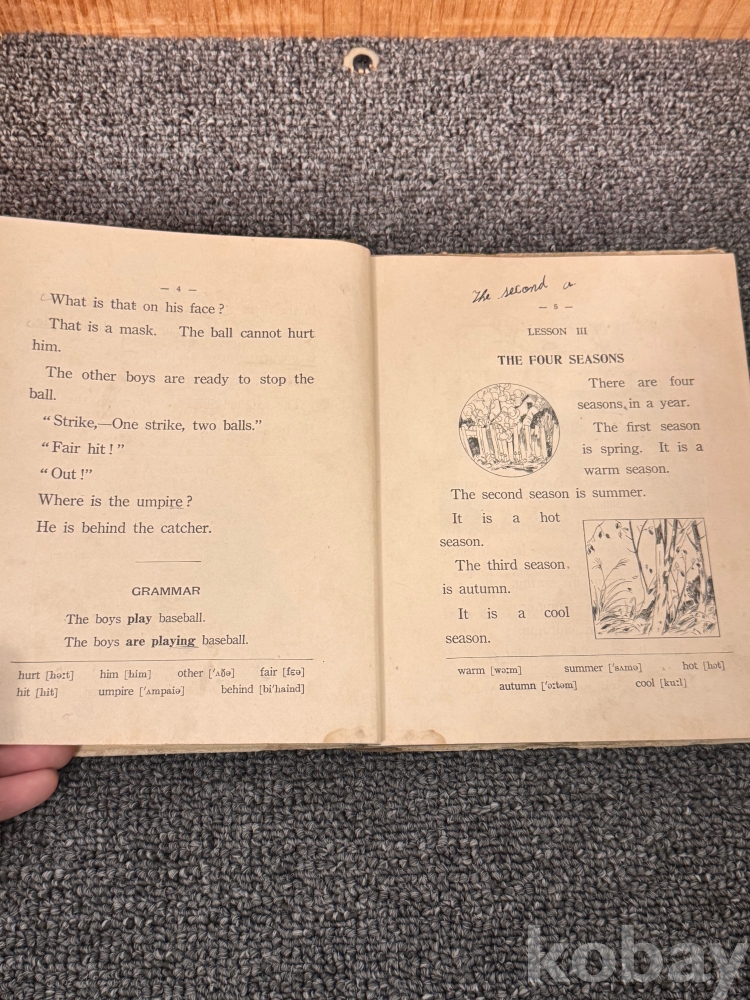 — 4 —
What is that on his face?
That is a mask. The ball cannot hurt
him.
The other boys are ready to stop the
ball.
"Strike,—One strike, two balls."
"Fair hit!"
"Out!"
Where is the umpire?
He is behind the catcher.
GRAMMAR
The boys play baseball.
The boys are playing baseball.
hurt [həːt] him [him] other ['ʌðə] fair [fɛə]
hit [hit] umpire ['ʌmpaiə] behind [bi'haind]
The second a
— 5 —
LESSON III
THE FOUR SEASONS
There are four
seasons, in a year.
The first season
is spring. It is a
warm season.
The second season is summer.
It is a hot
season.
The third season
is autumn.
It is a cool
season.
warm [wɔːm] summer ['sʌmə] hot [hɔt]
autumn ['ɔːtəm] cool [kuːl]
kobay